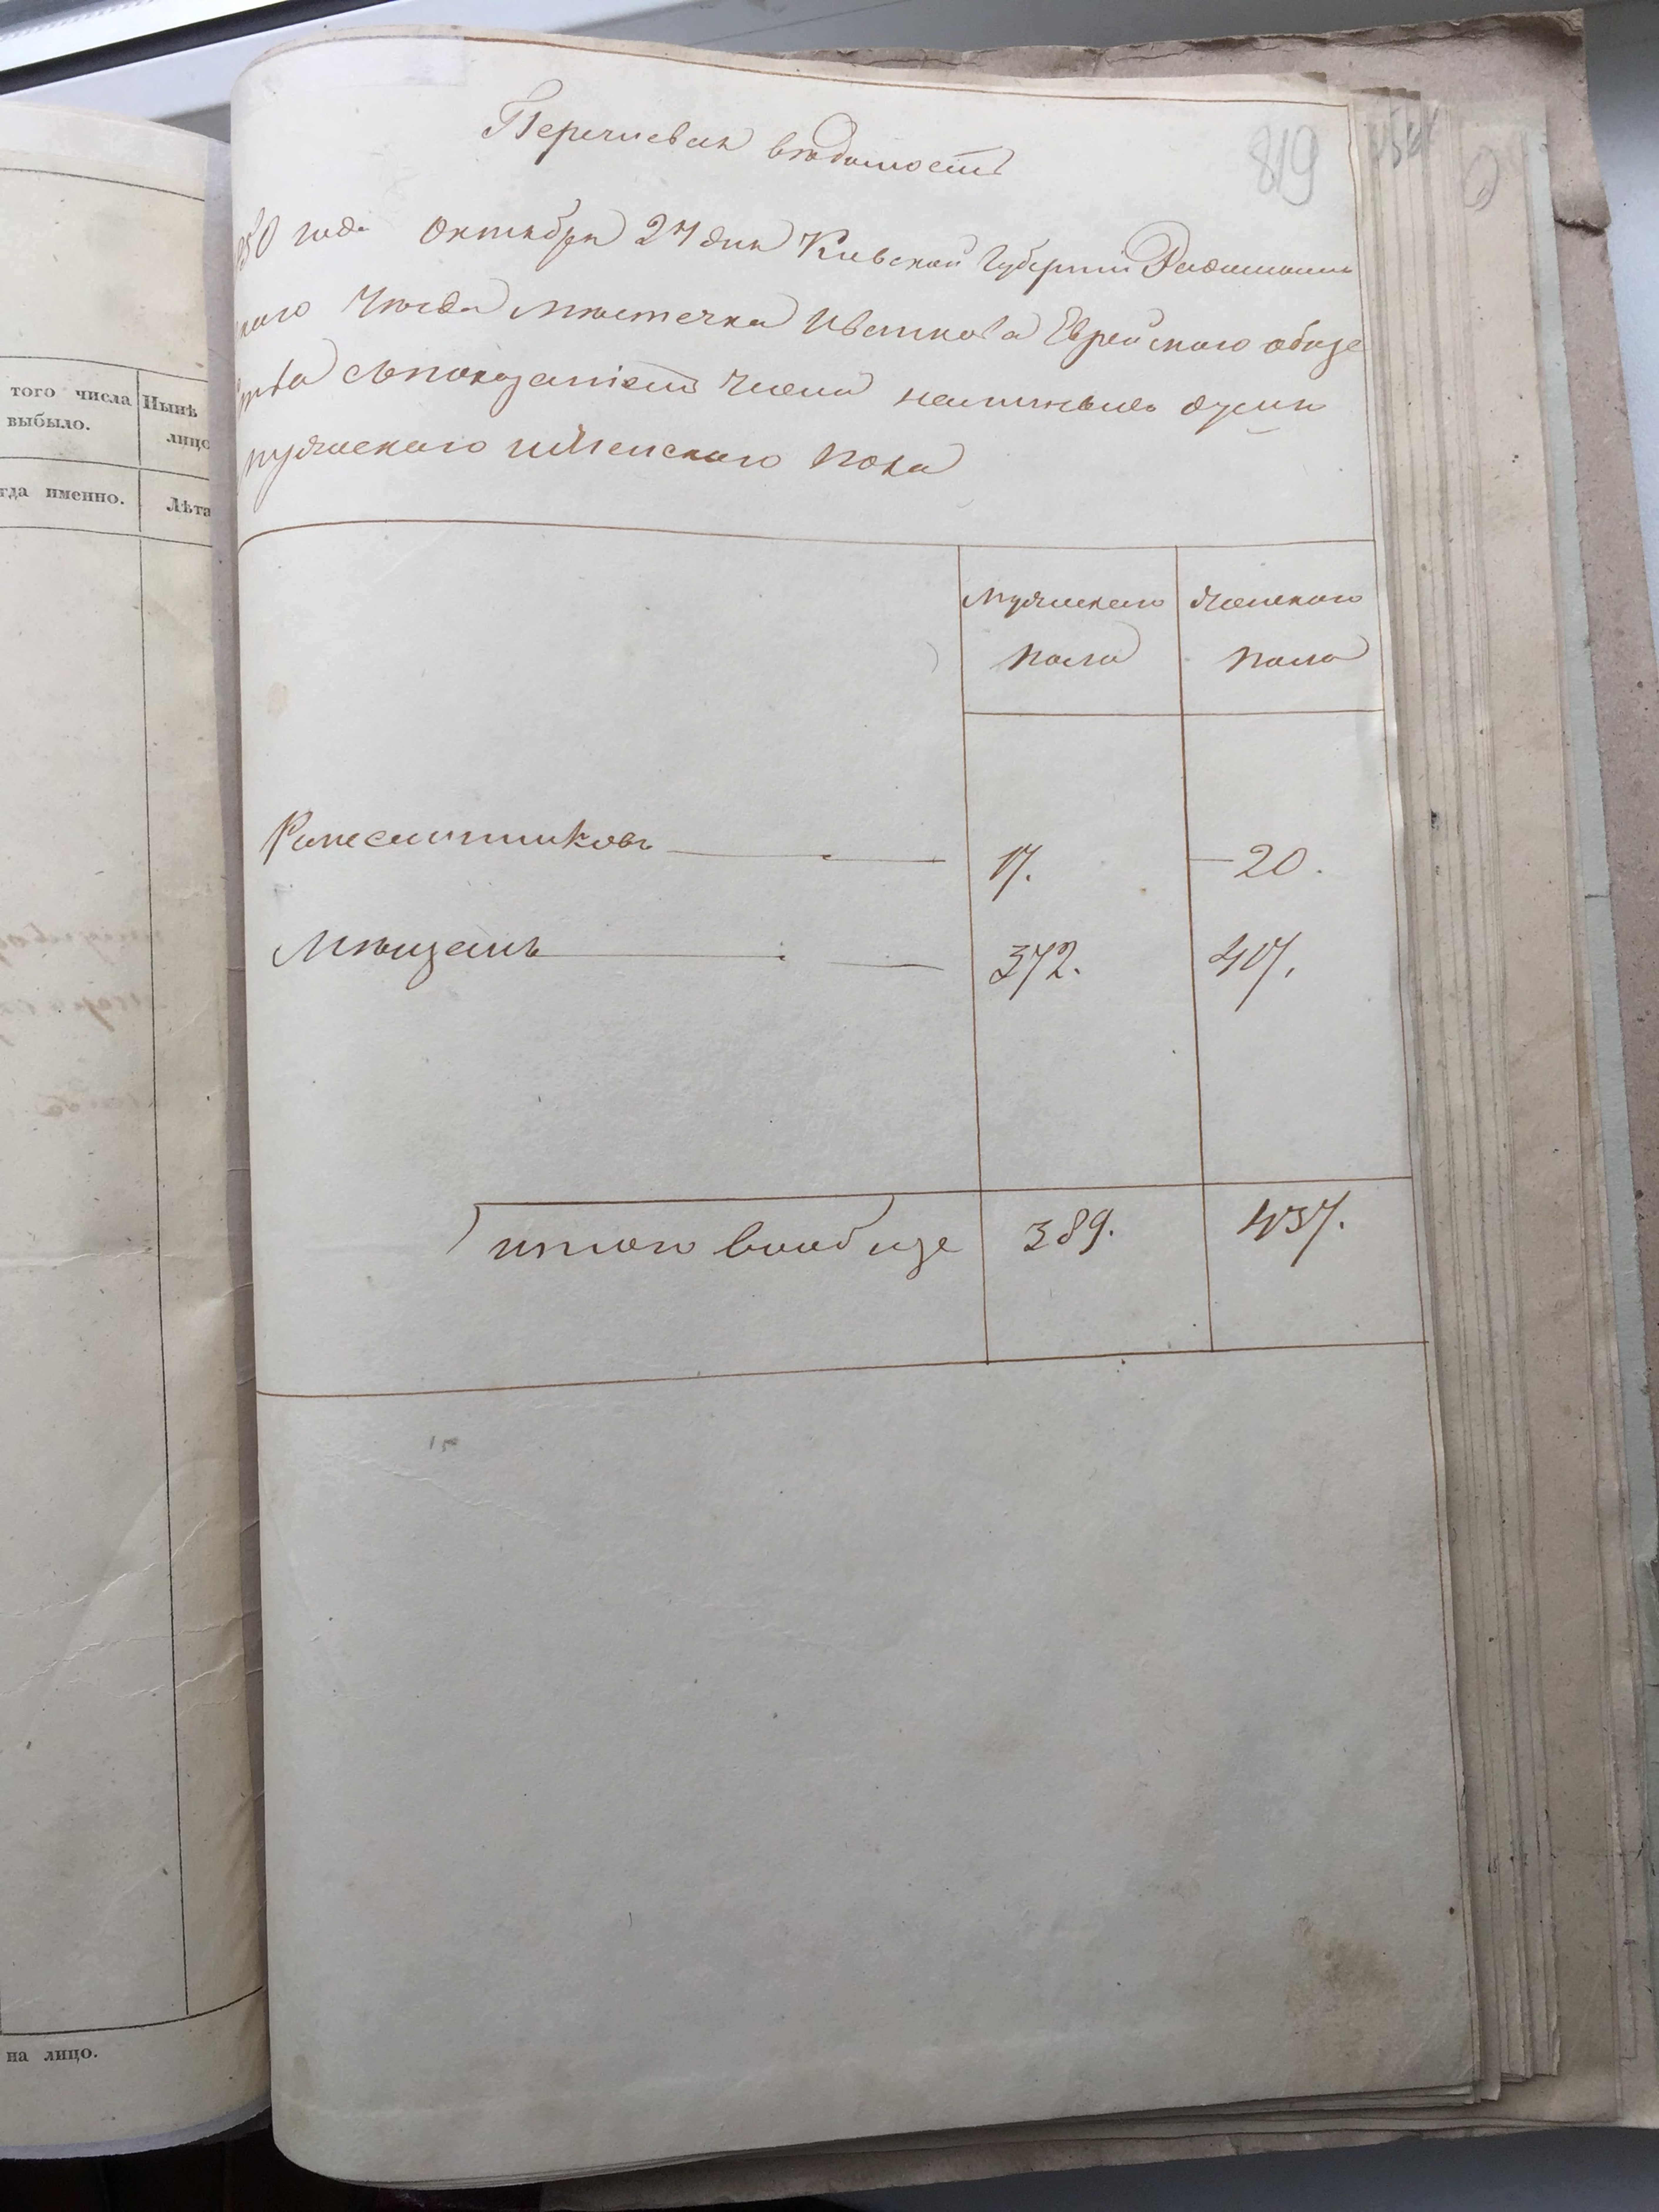 того числа
выбыло.
Нынѣ
лицо
гда именно.
Лѣта
на лицо.
819
Перечневая вѣдомость
850 года октября 27 дня Киевской Губерніи Радомысль
скаго Уѣзда Мѣстечка Иванкова Еврейского обще
ства съ показаніемъ числа наличныхъ душъ
мужескаго и женскаго пола
мужескаго женскаго
пола пола
Ремесленниковъ 17. 20.
Мѣщанъ 372. 417.
итого вообще 389. 437.
15